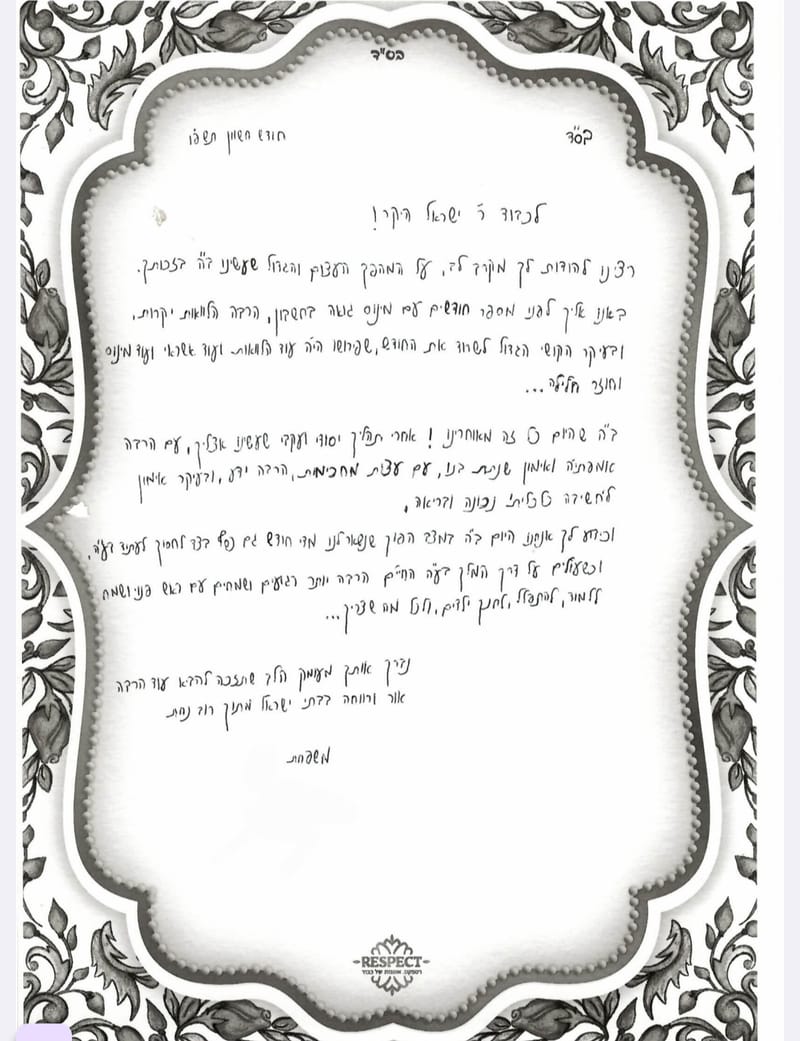 בס"ד
בס"ד
חודש חשוון תשפ"ו
לכבוד ר' ישראל היקר!
רצינו להודות לך מקרב לב, על המהפך העצום והגדול שעשינו ב"ה בזכותך.
באנו אליך לפני מספר חודשים עם מינוס גואה בחשבון, הרבה הלוואות יקרות,
ובעיקר הקושי הגדול לשרוד את החודש, שפירושו היה עוד הלוואות ועוד אשראי ועוד מינוס
וחוזר חלילה...
ב"ה שהיום כל זה מאחורינו! אחרי תהליך יסודי ועקבי שעשינו אצליך, עם הרבה
אמפתיה ואימון שנתת בנו, עם עצות מחכימות, הרבה ידע, ובעיקר אימון
לחשיבה כלכלית נכונה ובריאה.
וכידוע לך אנחנו היום ב"ה במצב הפוך שנשאר לנו מדי חודש גם כסף בצד לחסוך לעתיד בעז"ה,
וכשעולים על דרך המלך בע"ה החיים הרבה יותר רגועים ושמחים עם ראש פנוי ושמח
ללמוד, להתפלל, לחנך ילדים, ולכל מה שצריך...
נברך אותך מעומק הלב שתזכה להביא עוד הרבה
אור ורווחה בבתי ישראל מתוך רוב נחת
משפחת
RESPECT
רספקט. אומנות של כבוד